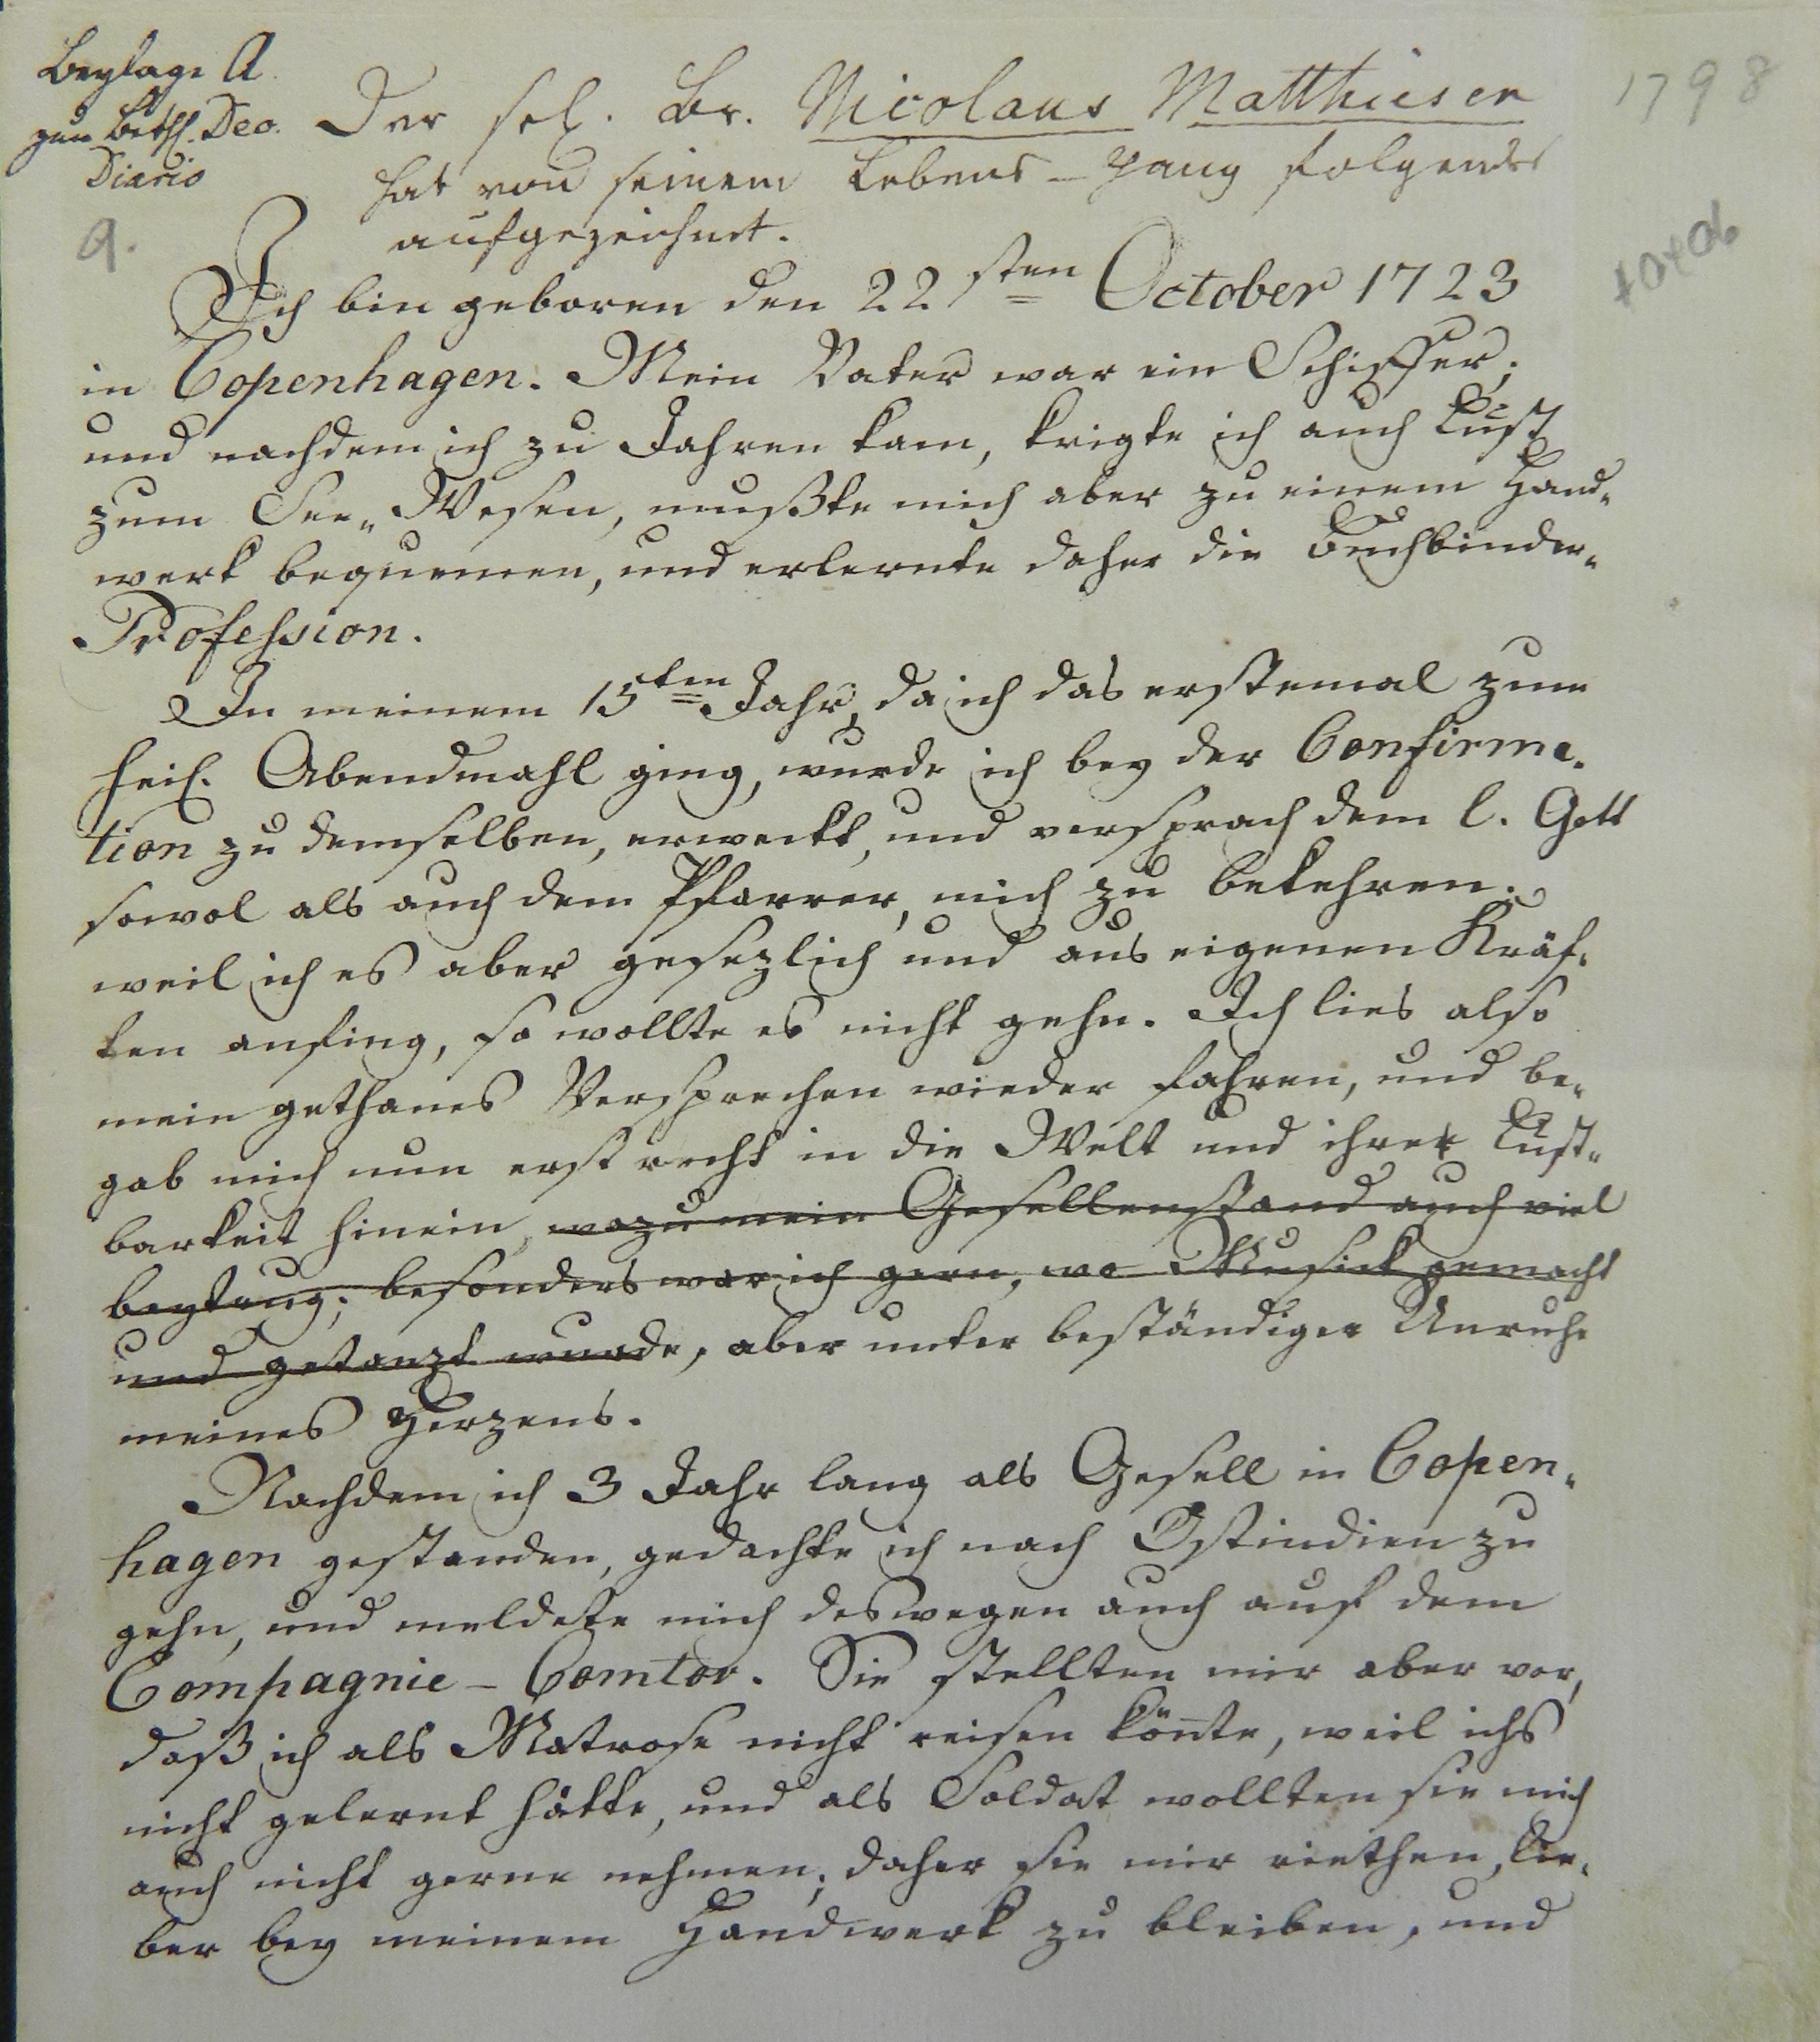 Beylage A.
zum Bethl. Dec.
Diario
9.
1798
Der sel. Br. Nicolaus Matthiesen
hat von seinem Lebens-Gang folgendes
aufgezeichnet.
Ich bin geboren den 22sten October 1723
in Copenhagen. Mein Vater war ein Schiffer;
und nachdem ich zu Jahren kam, krigte ich auch Lust
zum See-Wesen, mußte mich aber zu einem Hand-
werk bequemen, und erlernte daher die Buchbinder-
Profession.
In meinem 15ten Jahr, da ich das erstemal zum
heil. Abendmahl ging, wurde ich bey der Confirma-
tion zu demselben, erweckt, und versprach dem l. Gott
sowol als auch dem Pfarrer, mich zu bekehren.
weil ich es aber gesezlich und aus eigenen Kräf-
ten anfing, so wollte es nicht gehn. Ich lies also
mein gethanes Versprechen wieder fahren, und be-
gab mich nun erst recht in die Welt und ihre Lust-
barkeit hinein, wozu mein Gesellenstand auch viel
beytrug; besonders war ich gern, wo Musick gemacht
und getanzt wurde, aber unter beständiger Unruhe
meines Herzens.
Nachdem ich 3 Jahr lang als Gesell in Copen-
hagen gestanden, gedachte ich nach Ostindien zu
gehn, und meldete mich deswegen auch auf dem
Compagnie-Comtor. Sie stellten mir aber vor,
daß ich als Matrose nicht reisen könte, weil ichs
nicht gelernt hätte, und als Soldat wollten sie mich
auch nicht gerne nehmen; daher sie mir riethen, lie-
ber bey meinem Handwerk zu bleiben, und